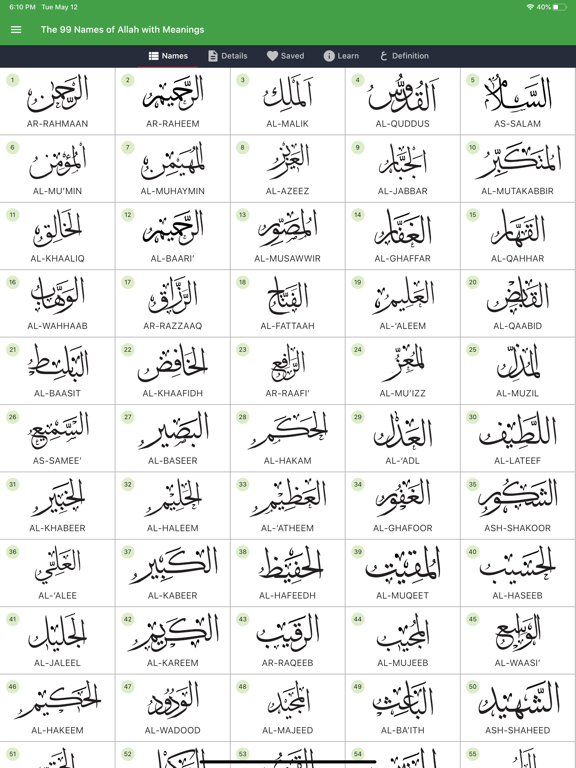 6:10 PM Tue May 12
40%
The 99 Names of Allah with Meanings
Names
Details
Saved
Learn
ع Definition
1
الرحمن
AR-RAHMAAN
2
الرحيم
AR-RAHEEM
3
الملك
AL-MALIK
4
القدوس
AL-QUDDUS
5
السلام
AS-SALAM
6
المؤمن
AL-MU’MIN
7
المهيمن
AL-MUHAYMIN
8
العزيز
AL-AZEEZ
9
الجبار
AL-JABBAR
10
المتكبر
AL-MUTAKABBIR
11
الخالق
AL-KHAALIQ
12
الرحيم
AL-BAARI’
13
المصور
AL-MUSAWWIR
14
الغفار
AL-GHAFFAR
15
القهار
AL-QAHHAR
16
الوهاب
AL-WAHHAAB
17
الرزاق
AR-RAZZAAQ
18
الفتاح
AL-FATTAAH
19
العليم
AL-‘ALEEM
20
القابض
AL-QAABID
21
الباسط
AL-BAASIT
22
الخافض
AL-KHAAFIDH
23
الرافع
AR-RAAFI’
24
المعز
AL-MU’IZZ
25
المذل
AL-MUZIL
26
السميع
AS-SAMEE’
27
البصير
AL-BASEER
28
الحكم
AL-HAKAM
29
العدل
AL-‘ADL
30
اللطيف
AL-LATEEF
31
الخبير
AL-KHABEER
32
الحليم
AL-HALEEM
33
العظيم
AL-‘ATHEEM
34
الغفور
AL-GHAFOOR
35
الشكور
ASH-SHAKOOR
36
العلي
AL-‘ALEE
37
الكبير
AL-KABEER
38
الحفيظ
AL-HAFEEDH
39
المقيت
AL-MUQEET
40
الحسيب
AL-HASEEB
41
الجليل
AL-JALEEL
42
الكريم
AL-KAREEM
43
الرقيب
AR-RAQEEB
44
المجيب
AL-MUJEEB
45
الواسع
AL-WAASI’
46
الحكيم
AL-HAKEEM
47
الودود
AL-WADOOD
48
المجيد
AL-MAJEED
49
الباعث
AL-BA’ITH
50
الشهيد
ASH-SHAHEED
51
52
53
54
55